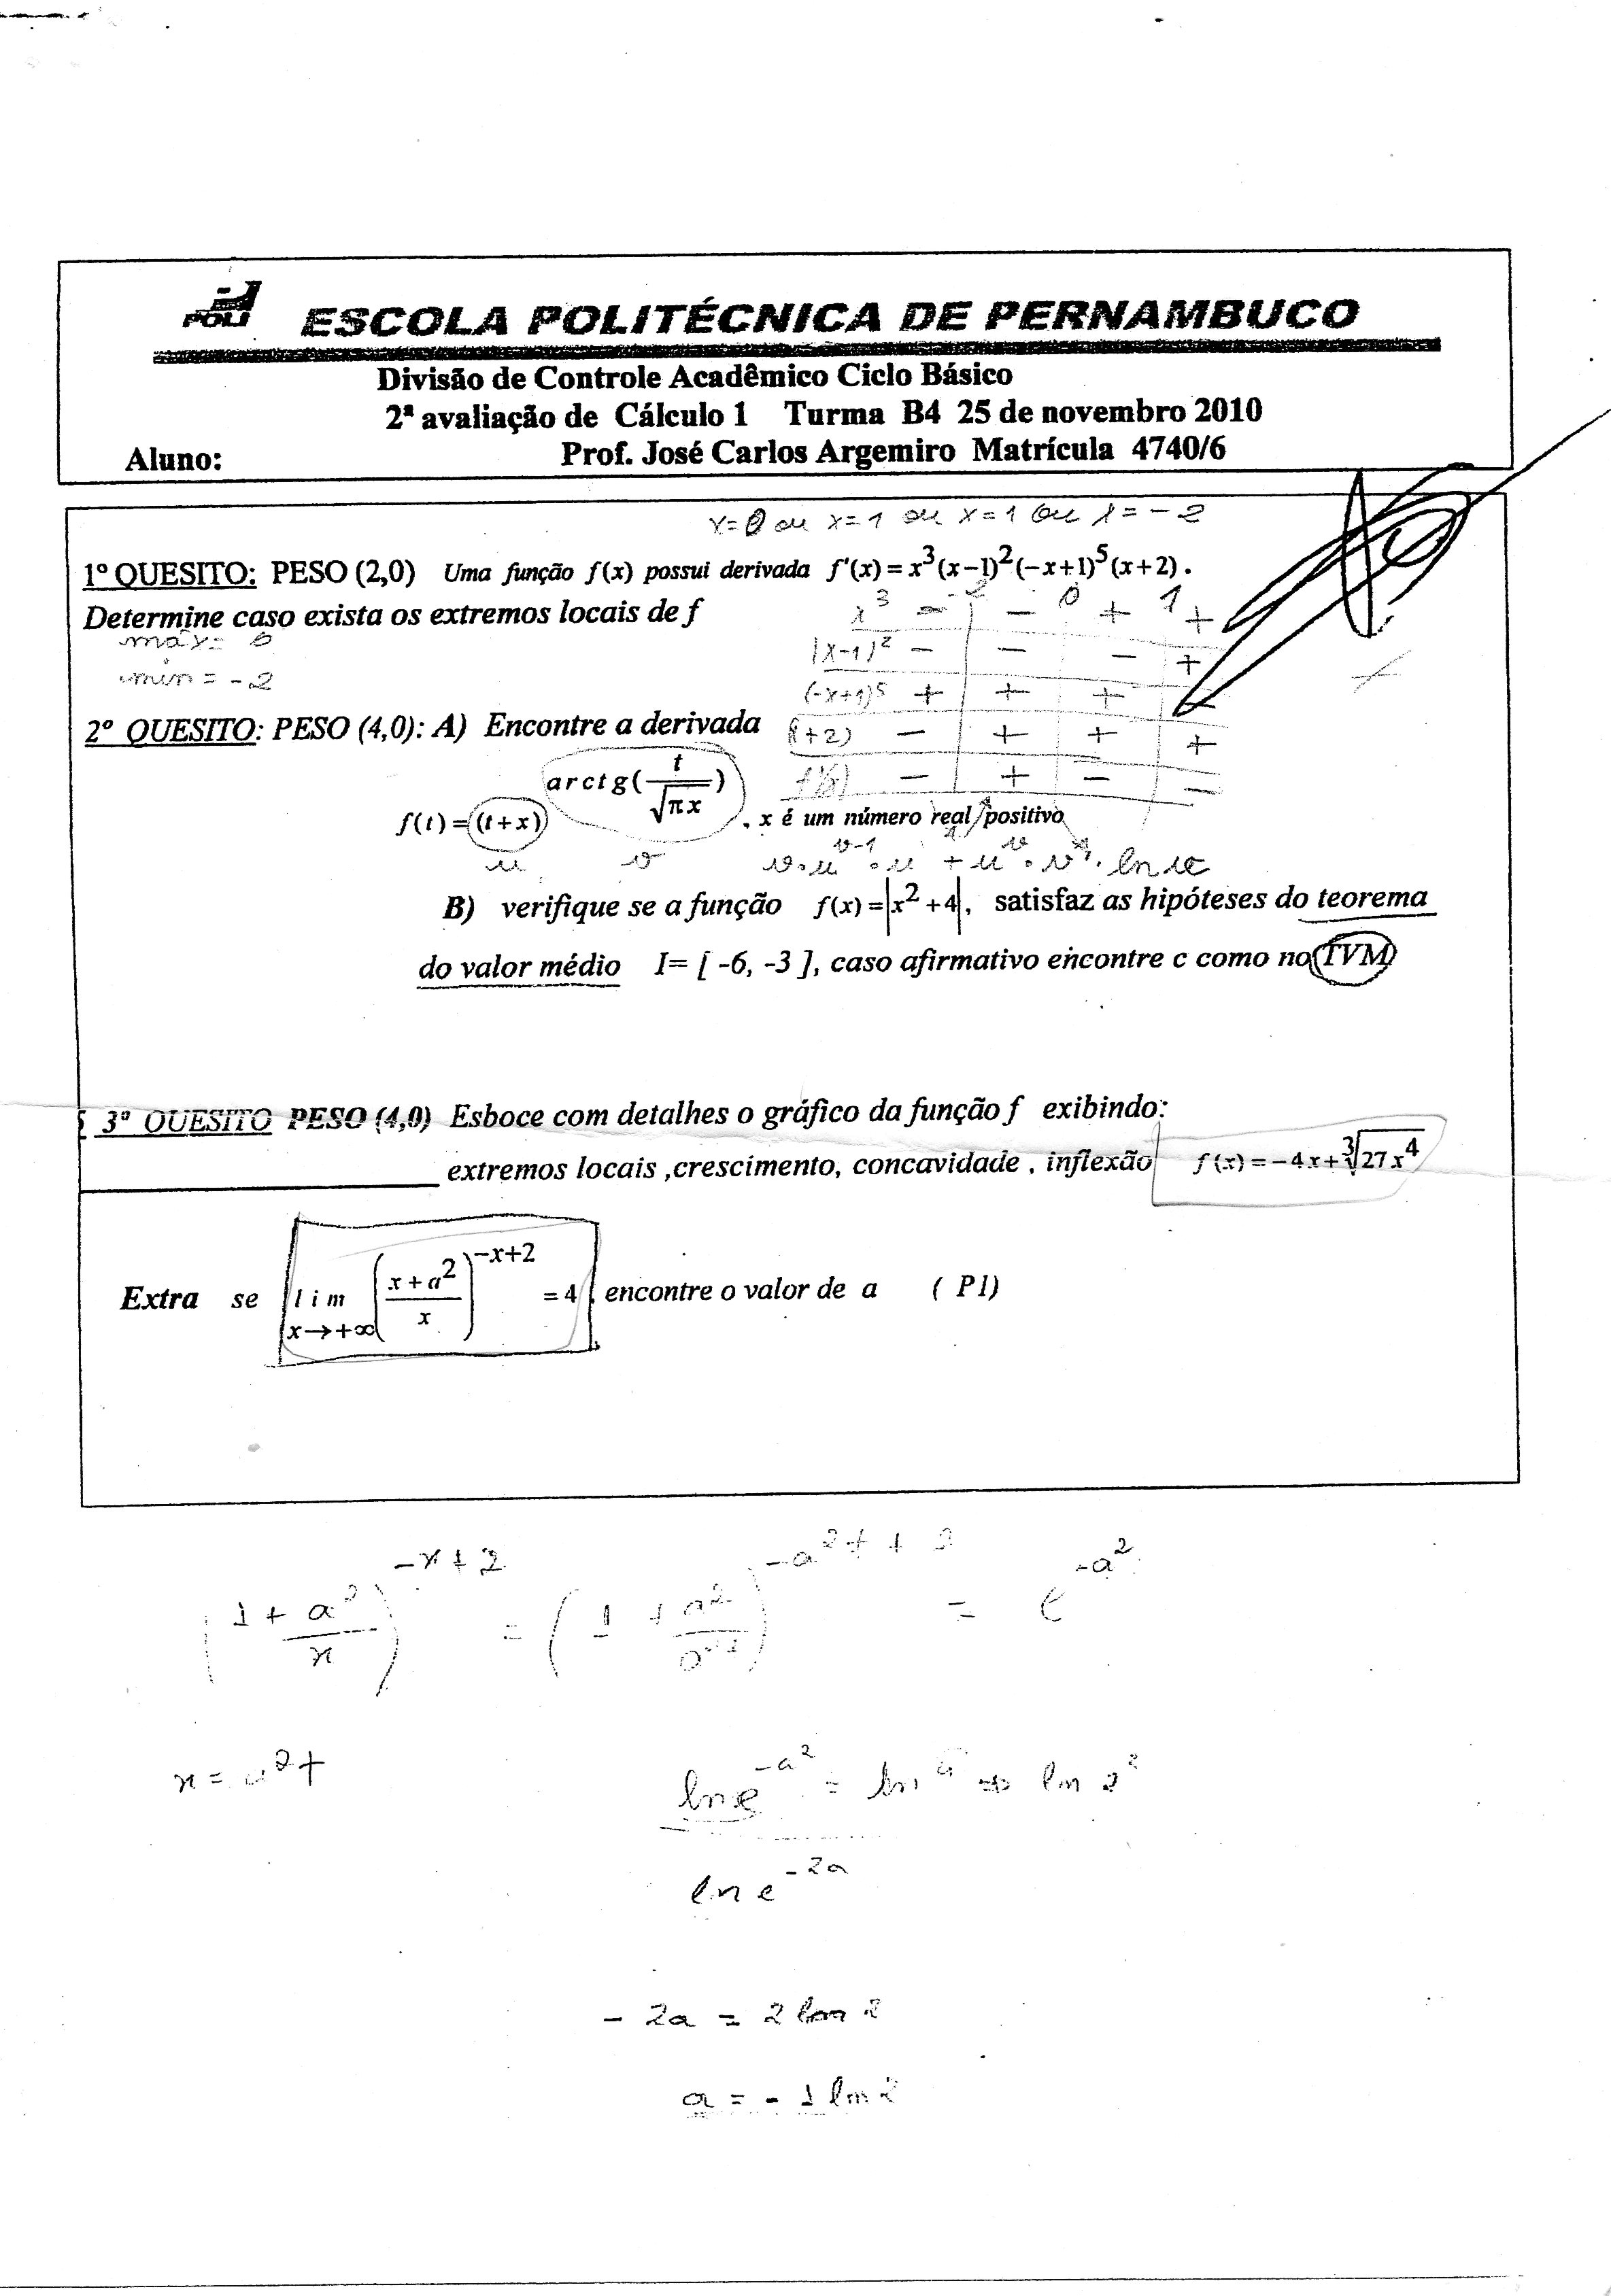 POLI ESCOLA POLITÉCNICA DE PERNAMBUCO
Divisão de Controle Acadêmico Ciclo Básico
2ª avaliação de Cálculo 1 Turma B4 25 de novembro 2010
Aluno: Prof. José Carlos Argemiro Matrícula 4740/6
x=0 ou x=1 ou x=1 ou x=-2
1º QUESITO: PESO (2,0) Uma função f(x) possui derivada f'(x)=x³(x−1)²(−x+1)⁵(x+2).
Determine caso exista os extremos locais de f
máx= 0
min = -2
x³ − -2 − 0 + 1 +
(x-1)² − − − +
(-x+1)⁵ + + + −
(x+2) − + + +
f'(x) − + − −
2º QUESITO: PESO (4,0): A) Encontre a derivada
f(t)=(t+x)^arctg(t/√πx), x é um número real positivo
u v v·u^v-1·u' + u^v·v'·ln u
B) verifique se a função f(x)=|x²+4|, satisfaz as hipóteses do teorema
do valor médio I= [ -6, -3 ], caso afirmativo encontre c como no TVM
3º QUESITO PESO (4,0) Esboce com detalhes o gráfico da função f exibindo:
extremos locais ,crescimento, concavidade , inflexão f(x)=−4x+∛27x⁴
Extra se lim x→+∞ ((x+a²)/x)^−x+2 =4, encontre o valor de a ( P1)
(1+a²/x)^-x+2 = (1+a²/a²t)^-a²t+2 = e^-a²
x = a²t
ln e^-a² = ln 4 ⇒ ln 2²
ln e^-2a
- 2a = 2 ln 2
a = - 1 ln 2